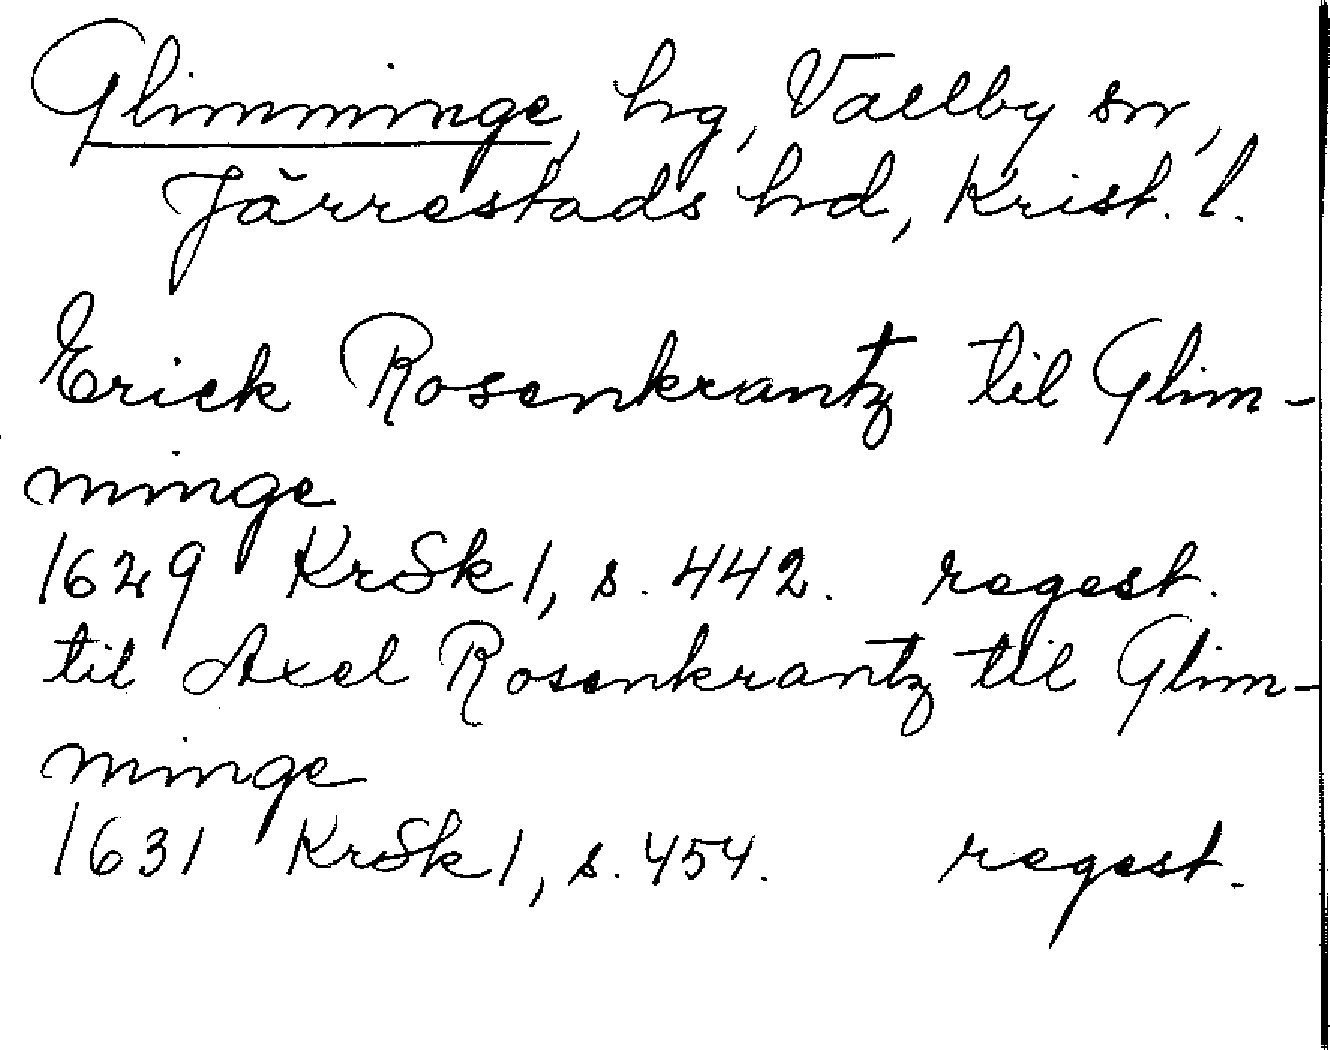 Glimminge, hg, Vallby sn,
Järrestads hd, Krist. l.
Erick Rosenkrantz til Glim-
minge
1629 KrSk 1, s. 442. regest.
til Axel Rosenkrantz til Glim-
minge
1631 KrSk 1, s. 454. regest.